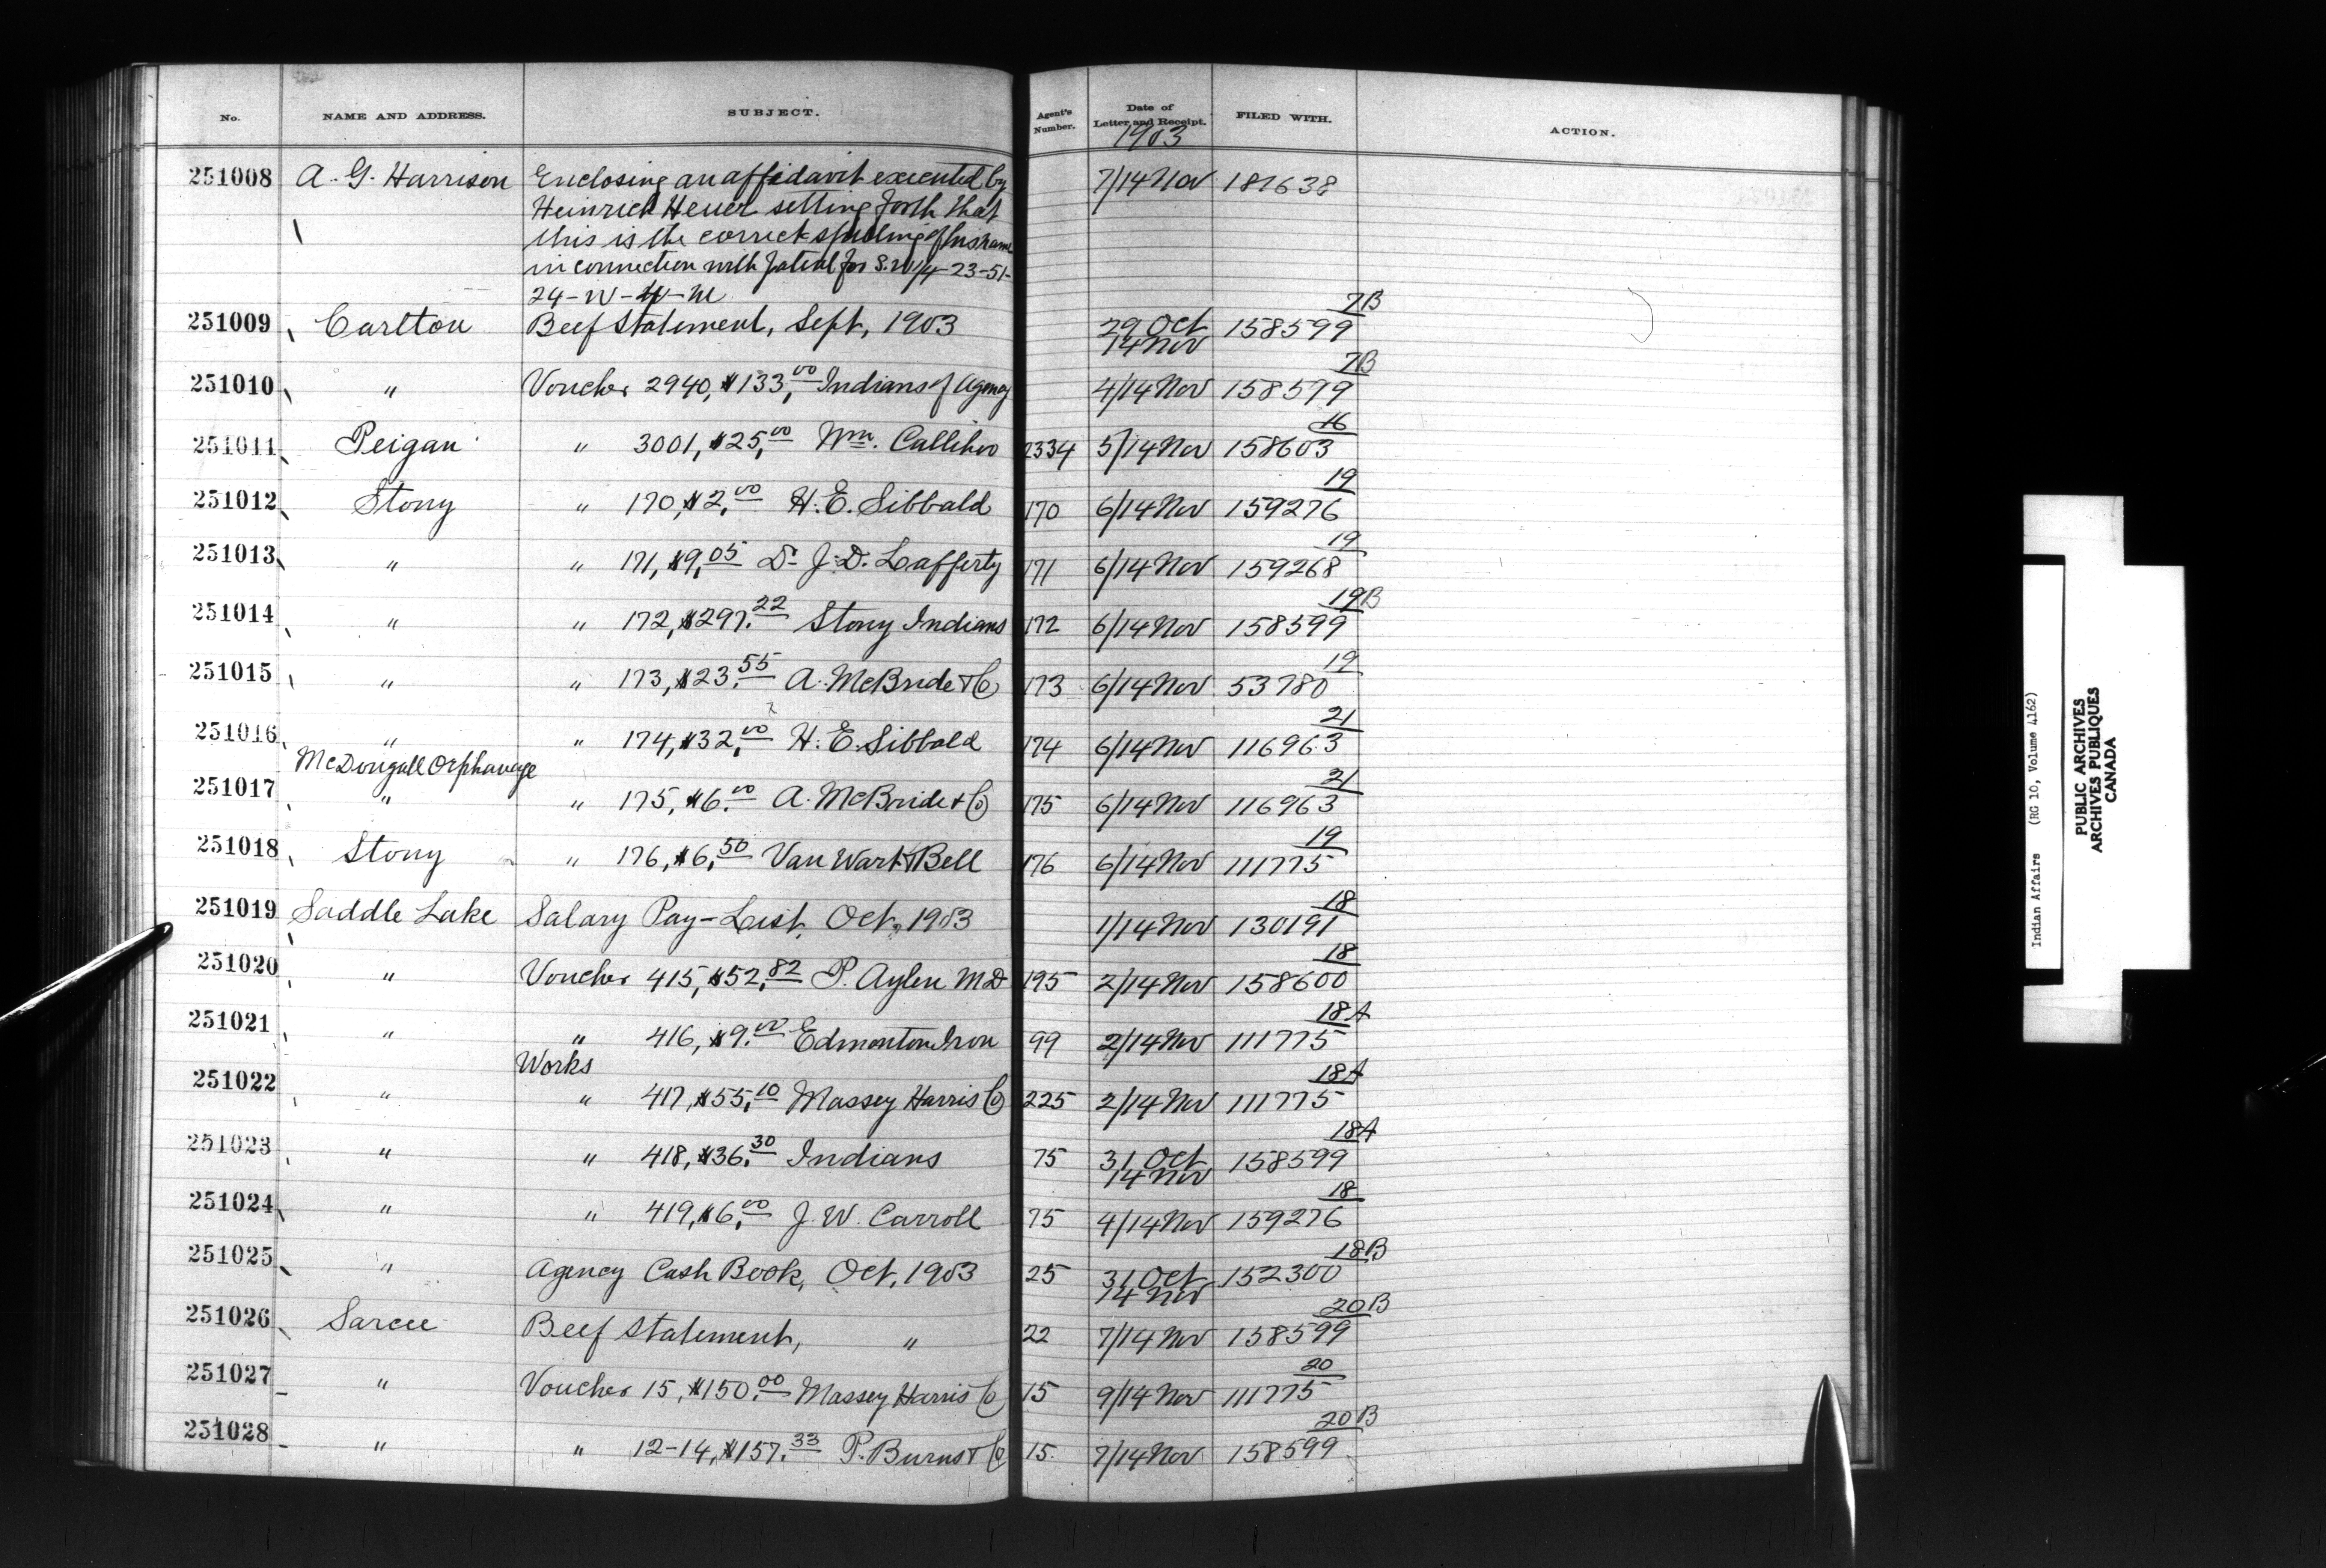 No. NAME AND ADDRESS. SUBJECT. Agent's Number. Date of Letter and Receipt. FILED WITH. ACTION.
1903
251008 A. G. Harrison Enclosing an affidavit executed by 7/14 Nov 187638
Heinrich Heuer setting forth that
this is the correct spelling of his name
in connection with patent for S.W 1/4-23-51-
24-W-4-M
7B
251009 Carlton Beef Statement, Sept, 1903 29 Oct 158599
14 Nov
7B
251010 " Voucher 2940, $133,00 Indians of Agency 4/14 Nov 158599
16
251011 Peigan " 3001, $25,00 Wm. Callihoo 2334 5/14 Nov 158603
19
251012 Stony " 170, $2,00 H. E. Sibbald 170 6/14 Nov 159276
19
251013 " " 171, $9,05 Dr J. D. Lafferty 171 6/14 Nov 159268
19B
251014 " " 172, $297.22 Stony Indians 172 6/14 Nov 158599
19
251015 " " 173, $23.55 A. McBride & Co 173 6/14 Nov 53780
21
251016 " " 174, $32,00 H. E. Sibbald 174 6/14 Nov 116963
McDougall Orphanage
21
251017 " " 175, $6.00 A. McBride & Co 175 6/14 Nov 116963
19
251018 Stony " 176, $6,50 Van Wart & Bell 176 6/14 Nov 111775
18
251019 Saddle Lake Salary Pay-List, Oct, 1903 1/14 Nov 130191
18
251020 " Voucher 415, $52,82 P. Aylen M D 195 2/14 Nov 158600
18A
251021 " " 416, $9.00 Edmonton Iron 99 2/14 Nov 111775
Works
18A
251022 " " 417, $55,10 Massey Harris Co 225 2/14 Nov 111775
18A
251023 " " 418, $36.30 Indians 75 31 Oct 158599
14 Nov
18
251024 " " 419, $6,00 J. W. Carroll 75 4/14 Nov 159276
18B
251025 " Agency Cash Book, Oct, 1903 25 31 Oct 152300
14 Nov
20B
251026 Sarcee Beef Statement, " 22 7/14 Nov 158599
20
251027 " Voucher 15, $150.00 Massey Harris Co 15 9/14 Nov 111775
20B
251028 " " 12-14, $157.33 P. Burns & Co 15. 7/14 Nov 158599
Indian Affairs (RG 10, Volume 4162)
PUBLIC ARCHIVES
ARCHIVES PUBLIQUES
CANADA